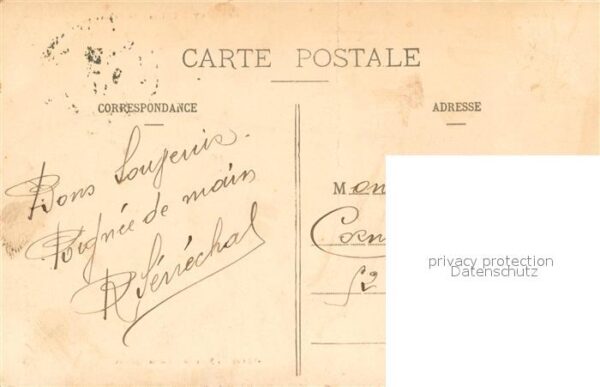 CARTE POSTALE
CORRESPONDANCE
ADRESSE
Bons Souvenirs.
Poignée de main
R Sénéchal
Mon
Corn
52
privacy protection
Datenschutz